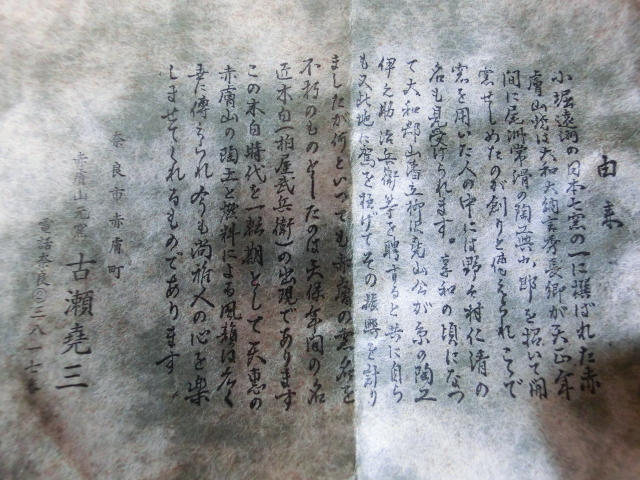 由来
小堀遠州の日本七窯の一に選ばれた赤
膚山焼は大和大納言秀長卿が天正年
間に尾州常滑の陶工與九郎を招いて開
窯せしめたのが創りと伝えられここで
窯を用いた人の中には野々村仁清の
名も見受けられます。享和の頃になつ
て大和郡山藩主柳沢尭山公が京の陶工
伊之助治兵衛等を聘すると共に自ら
も又此地に窯を
その振興を計り
ましたが何といつても赤膚の窯名を
不朽のものとしたのは天保年間の名
匠木白(柏屋武兵衛)の出現であります
この木白時代を一転期として天恵の
赤膚山の陶土と燃料による風韻は永く
吾に傳えられ今も尚雅人の心を楽
しませてくれるものであります。
奈良市赤膚町
赤膚山元窯 古瀬堯三
電話奈良